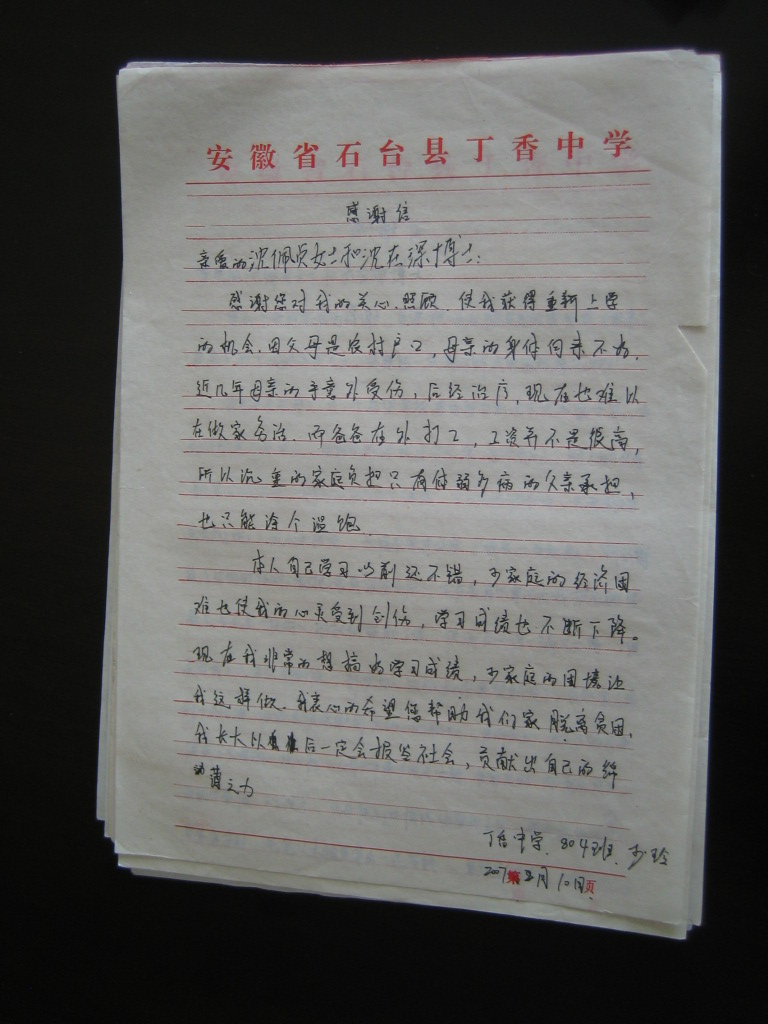 安徽省石台县丁香中学
感谢信
亲爱的沈佩贞女士和沈在深博士:
感谢您对我的关心.照顾.使我获得重新上学
的机会.因父母是农村户口,母亲的身体向来不好.
近几年母亲的手意外受伤,后经治疗,现在也难以
在做家务活.而爸爸在外打工,工资并不是很高,
所以沉重的家庭负担只有体弱多病的父亲承担,
也只能涂个温饱.
本人自己学习以前还不错,
家庭的经济困
难也使我的心灵受到创伤,学习成绩也不断下降。
现在我非常的想搞好学习成绩,
家庭的困境让
我这样做.我衷心的希望您帮助我们家脱离贫困.
我长大以后一定会报答社会,贡献出自己的绵
薄之力
丁香中学.804班.
玲
2007
月10日页